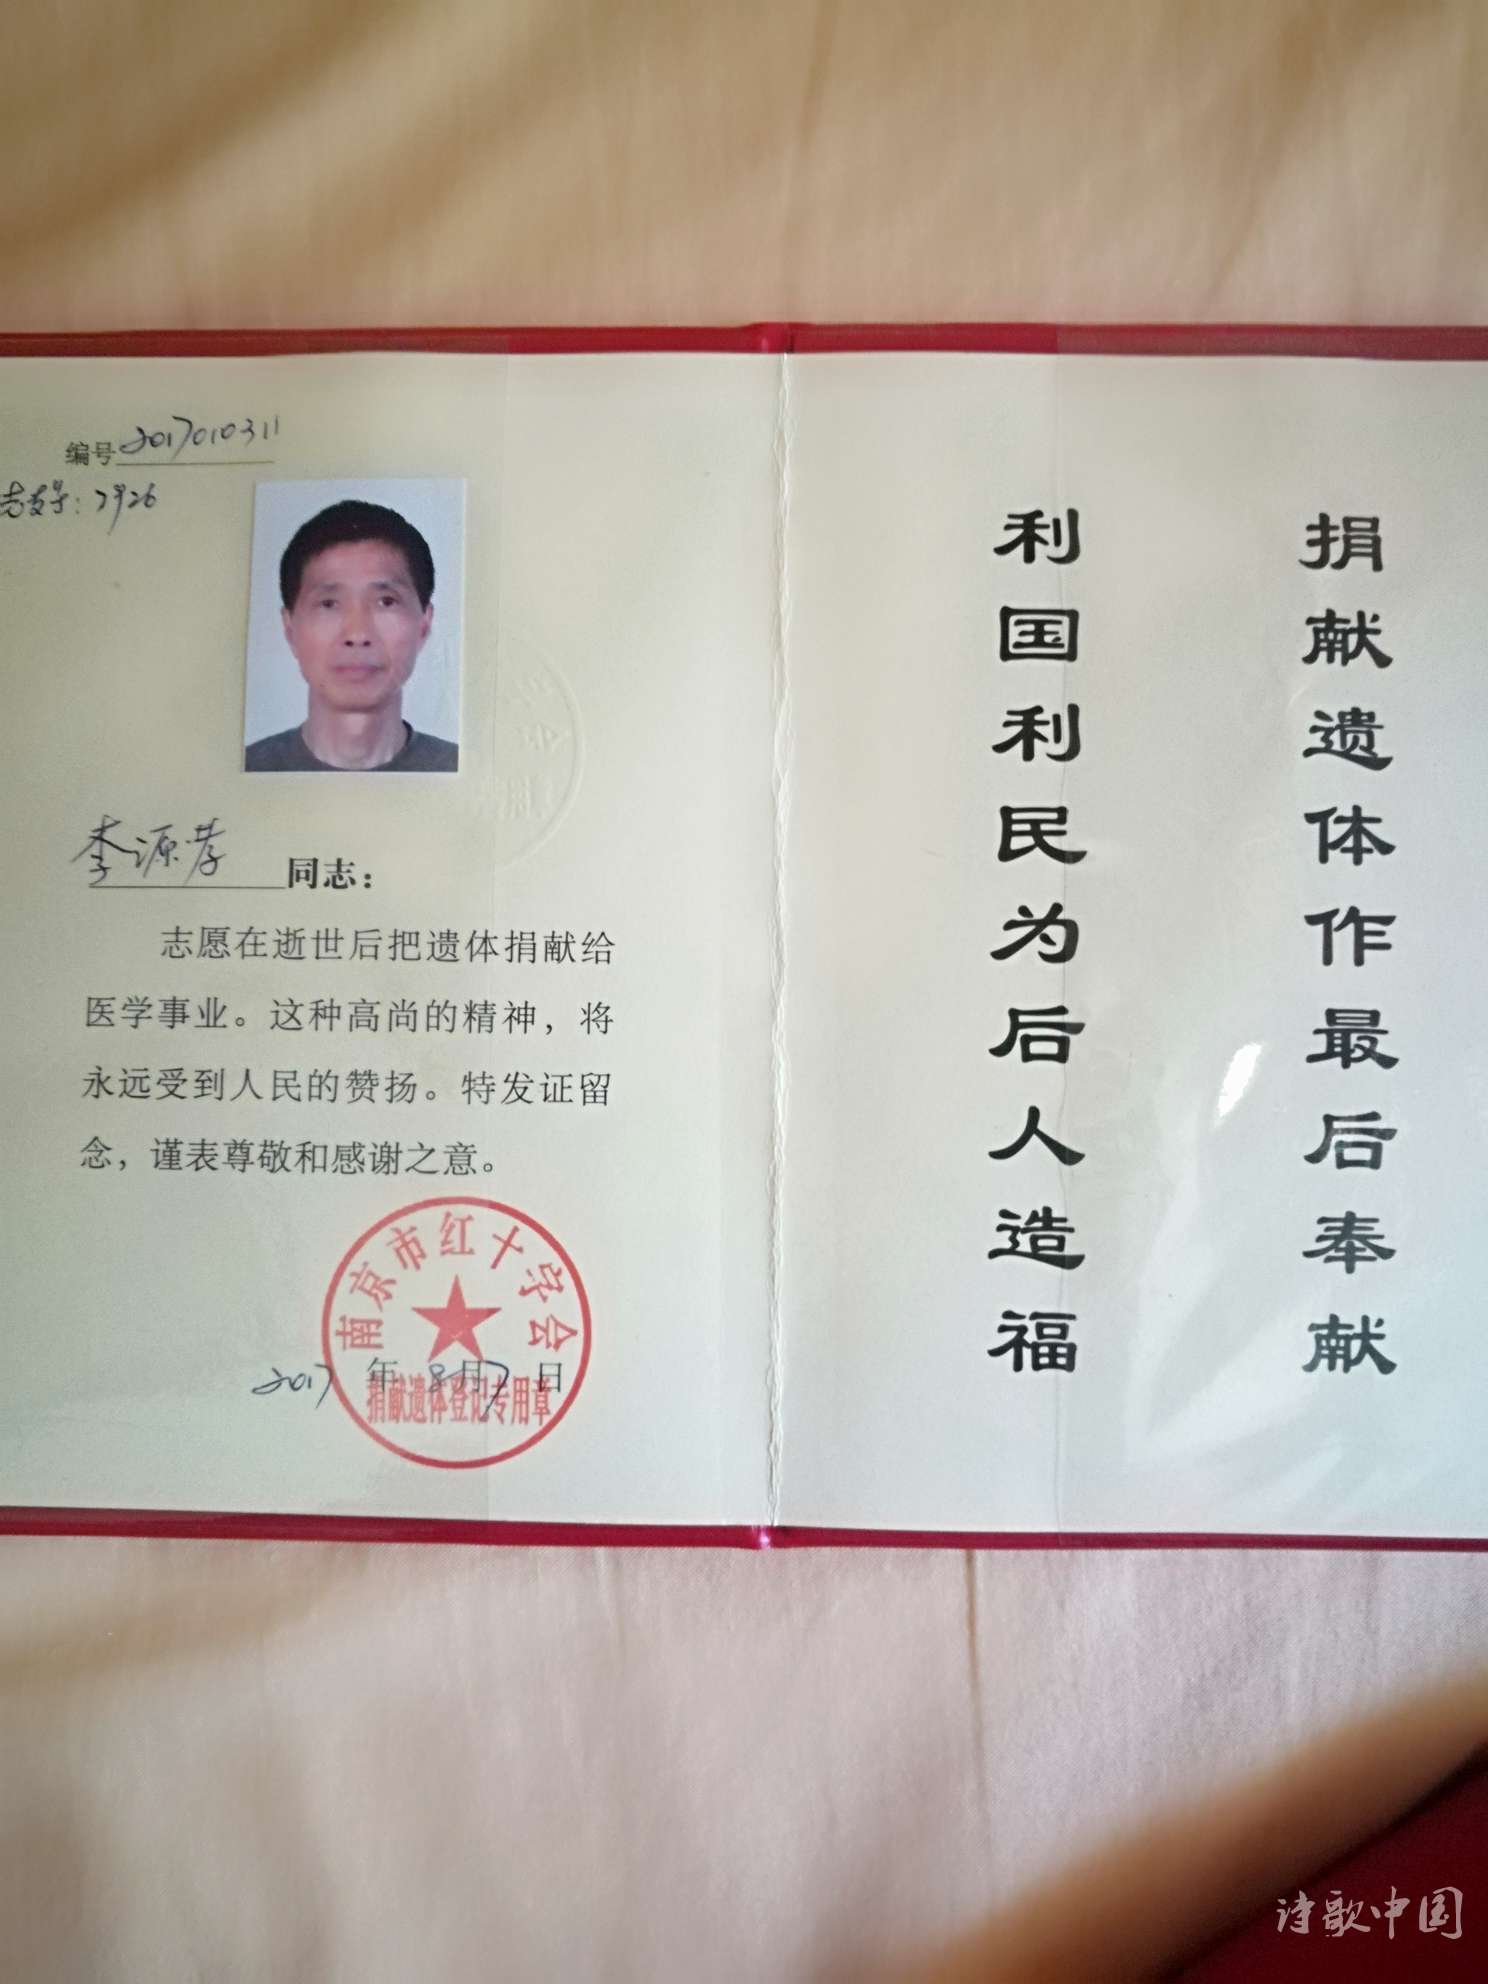 编号2017010311
志友号：2926
李源孝同志：
志愿在逝世后把遗体捐献给
医学事业。这种高尚的精神，将
永远受到人民的赞扬。特发证留
念，谨表尊敬和感谢之意。
南京市红十字会
2017年8月7日
捐献遗体登记专用章
捐献遗体作最后奉献
利国利民为后人造福
诗歌中国